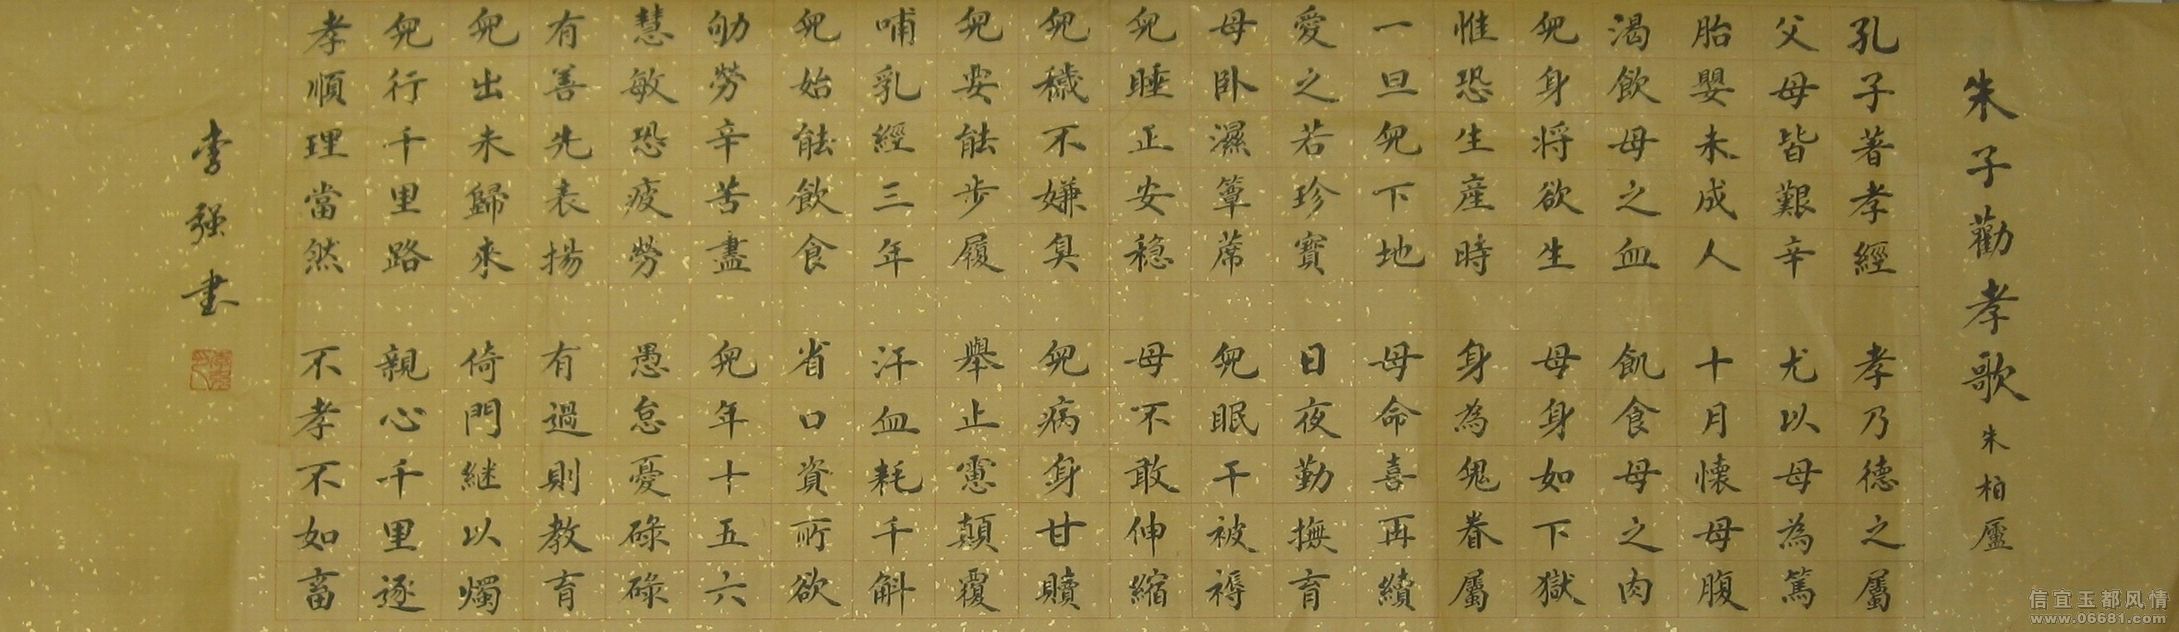 朱子勸孝歌 朱柏廬
孔子著孝經 孝乃德之屬
父母皆艱辛 尤以母為篤
胎嬰未成人 十月懷母腹
渴飲母之血 飢食母之肉
兒身将欲生 母身如下獄
惟恐生産時 身為鬼眷屬
一旦兒下地 母命喜再續
愛之若珍寶 日夜勤撫育
母卧濕簟蓆 兒眠干被褥
兒睡正安穏 母不敢伸縮
兒穢不嫌臭 兒病身甘贖
兒安能步履 舉止慮顛覆
哺乳經三年 汗血耗千斛
兒始能飲食 省口資所欲
劬勞辛苦盡 兒年十五六
慧敏恐疲勞 愚怠憂碌碌
有善先表揚 有過則教育
兒出未歸來 倚門継以燭
兒行千里路 親心千里逐
孝順理當然 不孝不如畜
李强書
信宜玉都风情
www.06681.com